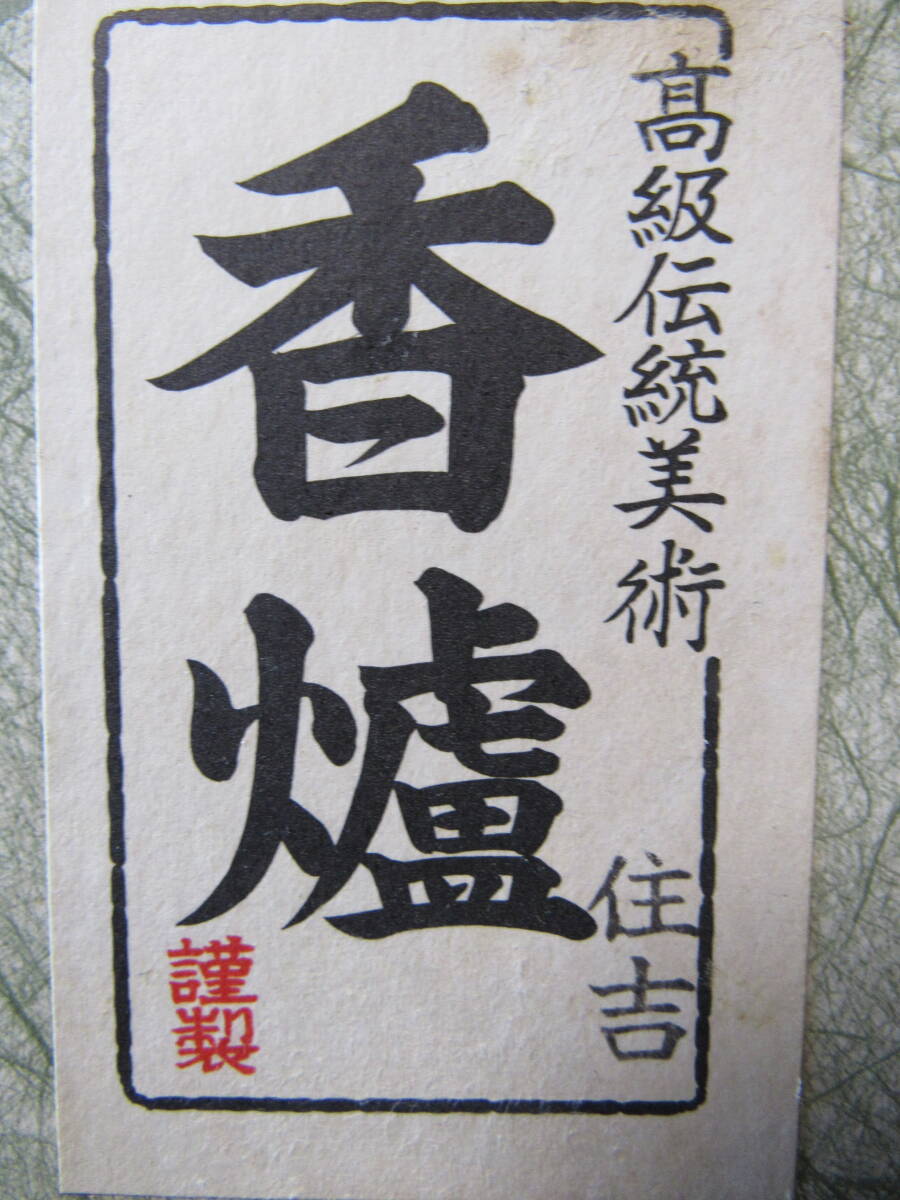 髙級伝統美術
香爐
住吉
謹製